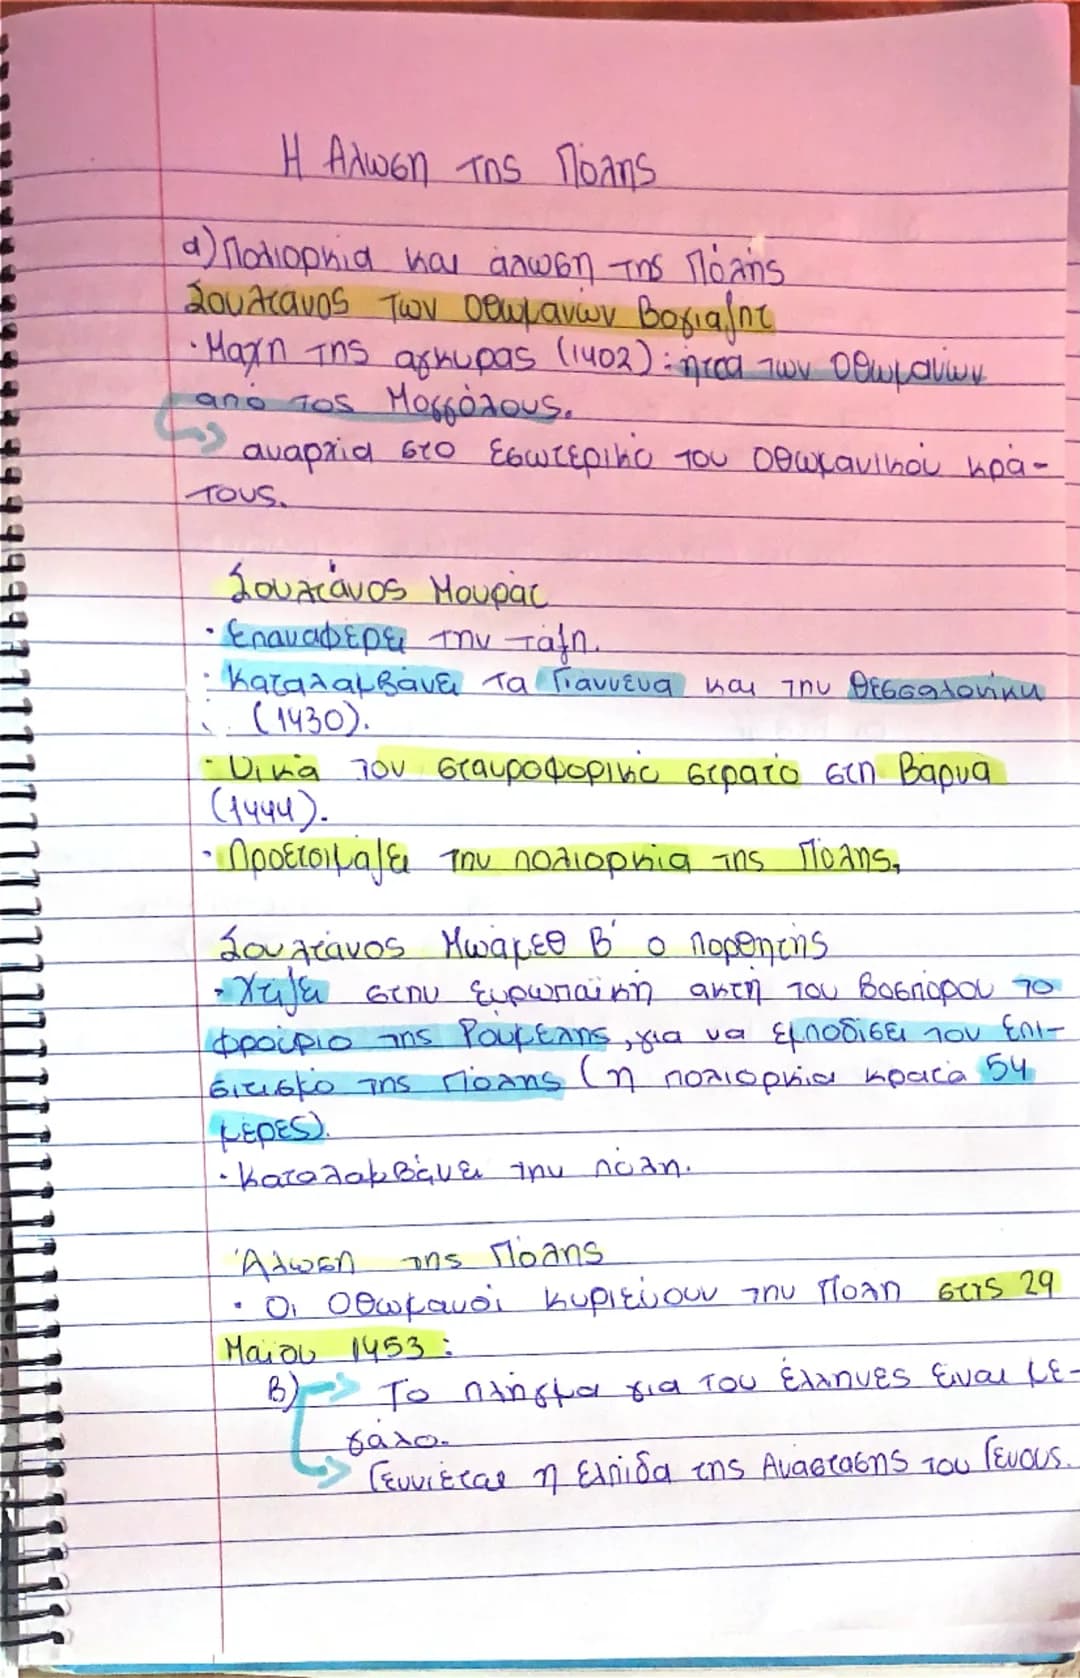 Η Αλωση της Πόλης
α) Πολιορκία και άλωση της Πόλης
Σουλτανος των Οθωμανών Βαγιαζητ
· Μαχη της αγκυρας (1402): ηττα των Οθωμανών
από τος Μογγόλους.
αναρχία στο εσωτερικό του Οθωμανικού κρά-
τους.
Σουλτάνος Μουράτ
· Επαναφέρει την τάξη.
· Καταλαμβάνει τα Γιαννενα και την Θεσσαλονίκη
(1430).
· Νικά τον σταυροφορικό στρατό στη Βάρνα
(1444).
· Προετοιμάζει την πολιορκία της Πόλης.
Σουλτάνος Μωάμεθ Β' ο πορθητής
· Χτίζει στην ευρωπαϊκή ακτή του Βοσπόρου το
φρούριο της Ρούμελης, για να εμποδίσει τον επι-
σιτισμό της Πόλης (η πολιορκία κρατά 54
μέρες).
· Καταλαμβάνει την πόλη.
Άλωση της Πόλης
· Οι Οθωμανοί κυριεύουν την Πολη στις 29
Μαΐου 1453:
Β) Το πλήγμα για του έλληνες ειναι με-
γάλο.
Γεννιέται η ελπίδα της Ανάστασης του Γένους.